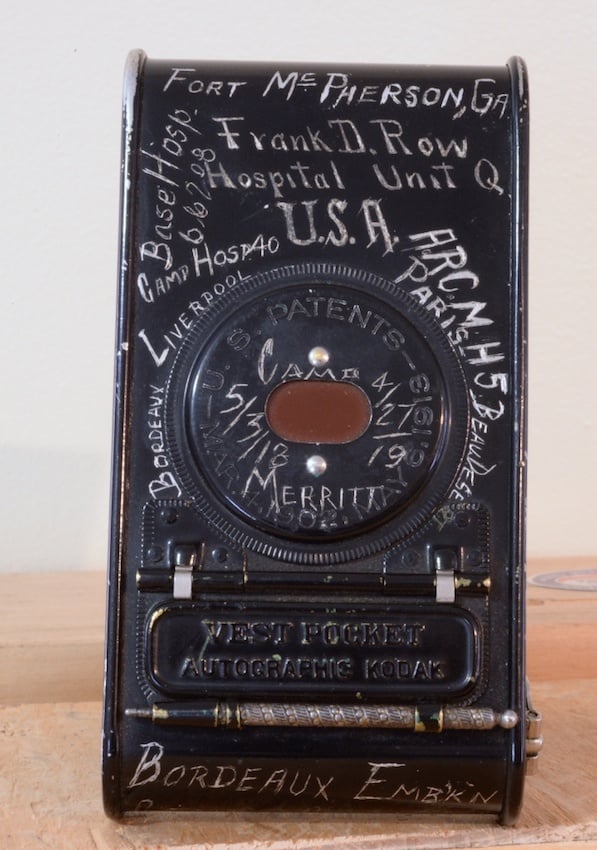 FORT McPHERSON, GA
Frank D. Row
Hospital Unit Q
U.S.A.
Base Hosp.
66 208
CAMP HOSP 40
LIVERPOOL
A.R.C.M.H 5
PARIS
BORDEAUX
U.S. PATENTS—
MAR. 1902, MAY 6, 1913
CAMP
5/3/18
4/27/19
MERRITT
VEST POCKET
AUTOGRAPHIC KODAK
BORDEAUX EMBK'N